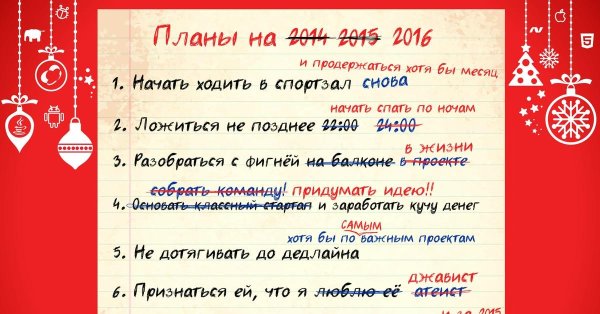 Планы на 2014 2015 2016
и продержаться хотя бы месяц
1. Начать ходить в спортзал снова
начать спать по ночам
2. Ложиться не позднее 22:00 24:00
в жизни
3. Разобраться с фигнёй на балконе в проекте
собрать команду! придумать идею!!
4. Основать классный стартап и заработать кучу денег
самым
хотя бы по важным проектам
5. Не дотягивать до дедлайна
джавист
6. Признаться ей, что я люблю её атеист